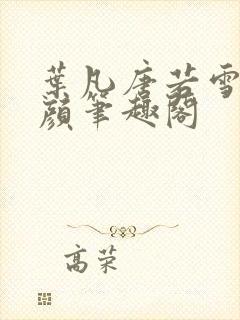 葉凡唐若雪
顏筆趣閣
高荣